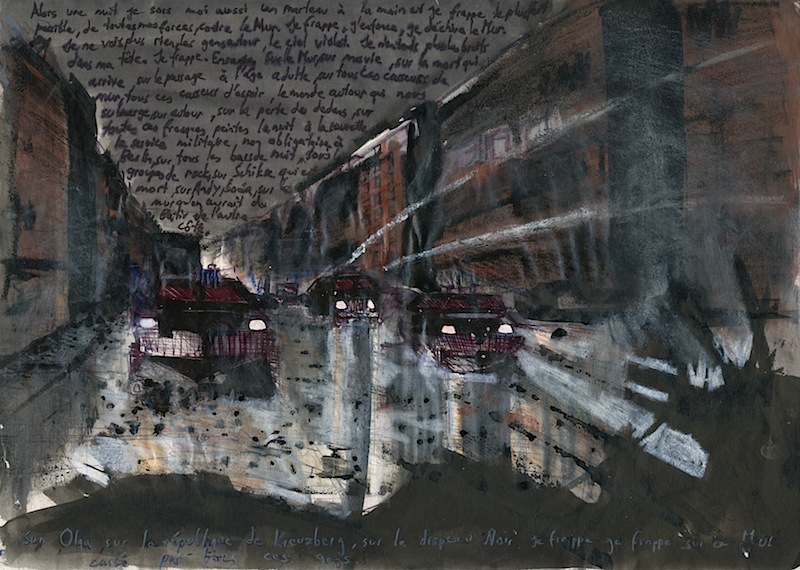 Alors une nuit je sors moi aussi un marteau à la main et je frappe le plus fort
possible, de toutes mes forces, contre le Mur. Je frappe, j'enfonce, je déchire le Mur.
Je ne vois plus rien, les gens autour, le ciel violet. Je n'entends plus le bruit
dans ma tête. Je frappe. Enragé. Sur le Mur, sur ma vie, sur la mort qui
arrive, sur le passage à l'âge adulte, sur tous ces casseurs de
mur, tous ces casseurs d'espoir, le monde autour qui nous
submerge, sur autour, sur la perte des dedans, sur
toutes ces fresques peintes la nuit à la sauvette
le service militaire, non obligatoire à
Berlin, sur tous les bas de nuit, tous
groupes de rock, sur Schikse qui est
mort, sur Andy, Sonia, sur le
mur qu'on aurait dû
bâtir de l'autre
côté.
Sur Olga, sur la république de Kreuzberg, sur le drapeau Noir je frappe je frappe sur ce Mur
ces gens.